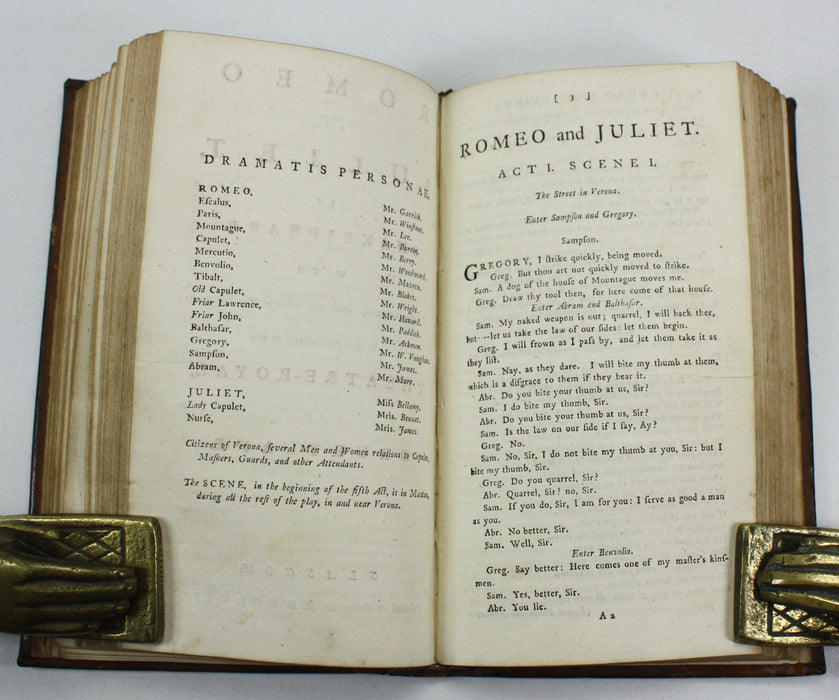 DRAMATIS PERSONAE.
ROMEO, Mr. Garrick.
Eſcalus, Mr. Winſtone.
Paris, Mr. Lee.
Mountague, Mr. Burton.
Capulet, Mr. Berry.
Mercutio, Mr. Woodward.
Benvolio, Mr. Mozeen.
Tibalt, Mr. Blakes.
Old Capulet, Mr. Wright.
Friar Lawrence, Mr. Havard.
Friar John, Mr. Paddick.
Balthaſar, Mr. Ackman.
Gregory, Mr. W. Vaughan.
Sampſon, Mr. James.
Abram, Mr. Marr.
JULIET, Miſs Bellamy.
Lady Capulet, Mris. Bennet.
Nurſe, Mris. James.
Citizens of Verona, ſeveral Men and Women relations to Capulet,
Maſkers, Guards, and other Attendants.
The SCENE, in the beginning of the fifth Act, is in Mantua,
during all the reſt of the play, in and near Verona.
[ 3 ]
ROMEO and JULIET.
ACT I. SCENE I.
The Street in Verona.
Enter Sampſon and Gregory.
Sampſon.
GREGORY, I ſtrike quickly, being moved,
Greg. But thou art not quickly moved to ſtrike.
Sam. A dog of the houſe of Mountague moves me.
Greg. Draw thy tool then, for here come of that houſe.
Enter Abram and Balthaſar.
Sam. My naked weapon is out; quarrel, I will back thee,
but----let us take the law of our ſides: let them begin.
Greg. I will frown as I paſs by, and let them take it as
they liſt.
Sam. Nay, as they dare. I will bite my thumb at them,
which is a diſgrace to them if they bear it.
Abr. Do you bite your thumb at us, Sir?
Sam. I do bite my thumb, Sir.
Abr. Do you bite your thumb at us, Sir?
Sam. Is the law on our ſide if I ſay, Ay?
Greg. No.
Sam. No, Sir, I do not bite my thumb at you, Sir: but I
bite my thumb, Sir.
Greg. Do you quarrel, Sir?
Abr. Quarrel, Sir? no, Sir.
Sam. If you do, Sir, I am for you: I ſerve as good a man
as you.
Abr. No better, Sir.
Sam. Well, Sir.
Enter Benvolio.
Greg. Say better: Here comes one of my maſter's kinſ-
men.
Sam. Yes, better, Sir.
Abr. You lie.
A 2